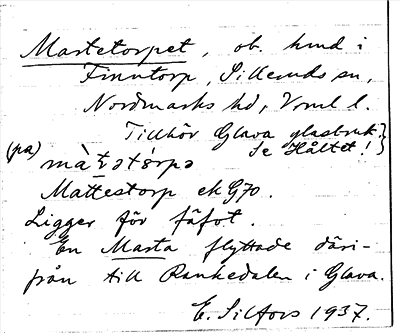 Mastetorpet, ob. hmd i
Finntorp, Sillerud sn,
Nordmarks hd, Vrml l.
Tillhör Glava glasbruk.
Se Håltet!
(på) màt̠ət́ɷrpə
Mattestorp ek G70.
Ligger för fäfot.
En Masta flyttade däri-
från till Rankedalen i Glava.
E. Silfors 1937.